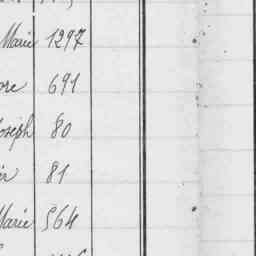 Marie 1297
ore 691
Joseph 80
81
Marie 564